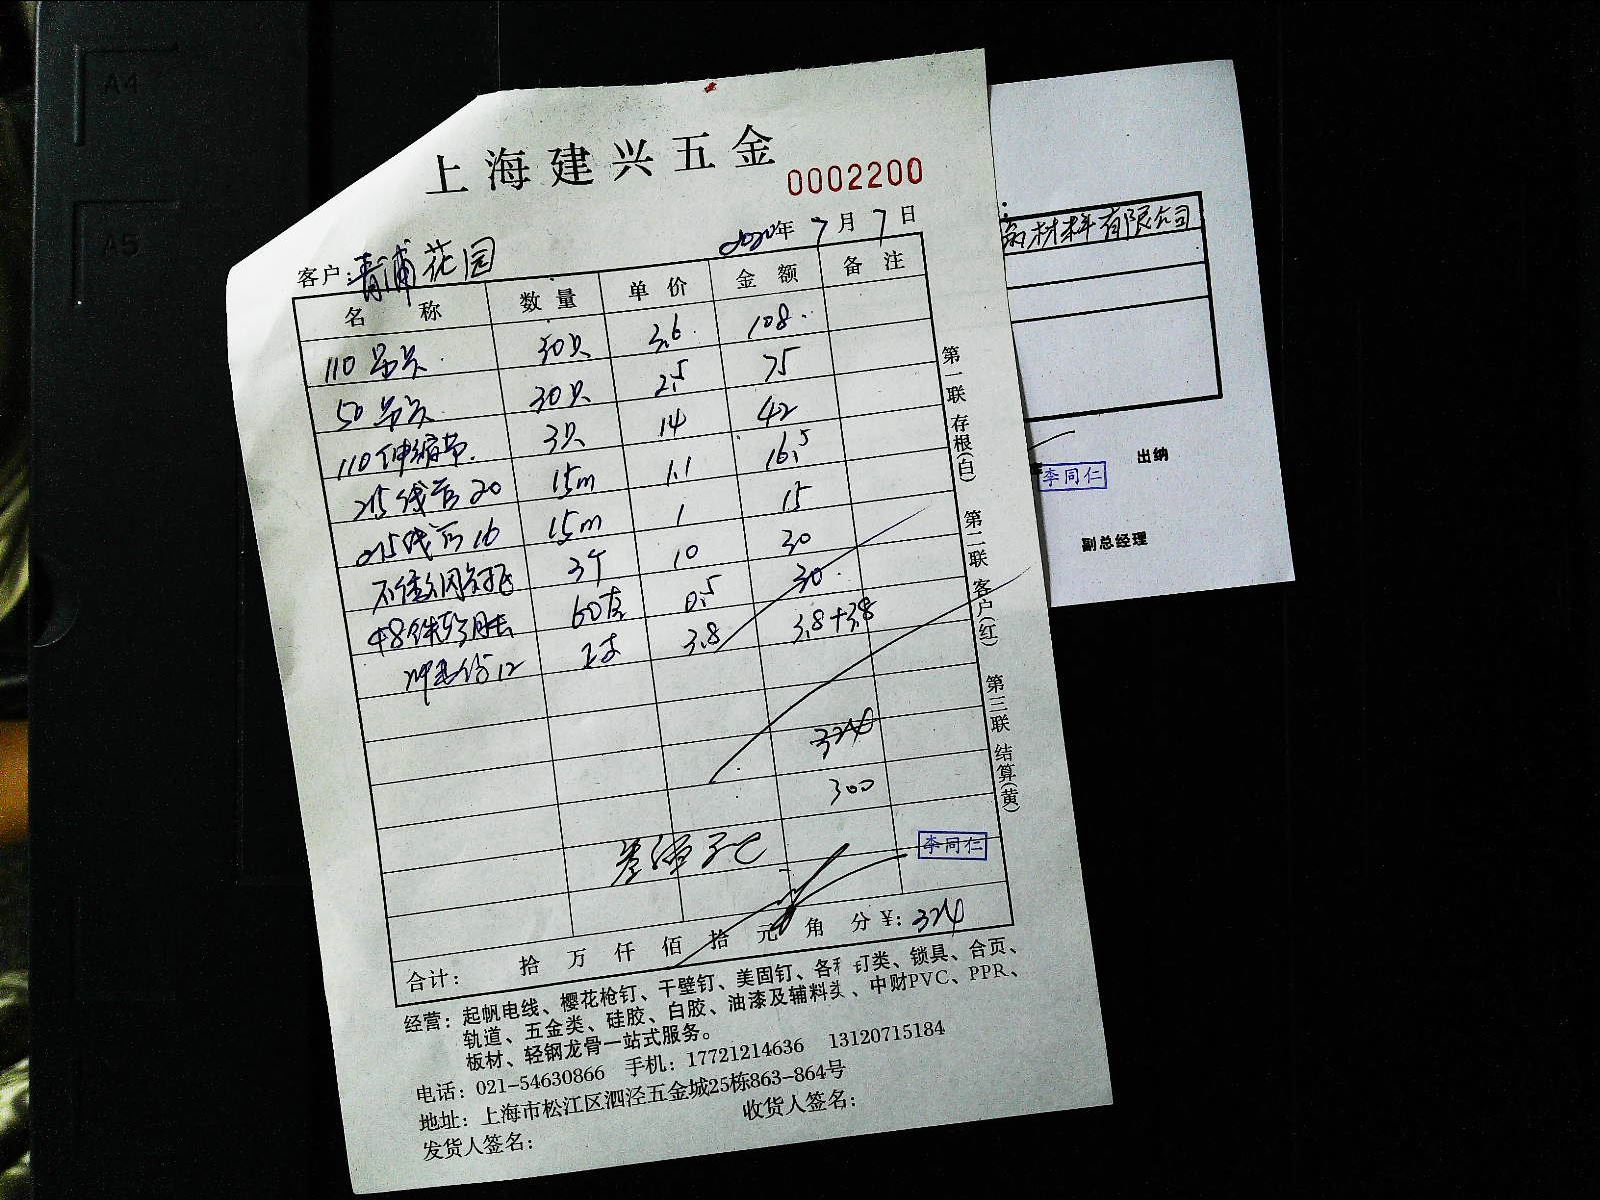 A4
A5
上海建兴五金
0002200
2020年 7月 7日
客户:青浦花园
名称 数量 单价 金额 备注
110 吊卡 30只 3.6 108
50 吊卡 30只 2.5 75
110 伸缩节 3只 14 42
215 线管 20 15m 1.1 16.5
215 线管 16 15m 1 15
3个 10 30
60 0.5 30
12 2 3.8 3.8+3.8
324
300
李同仁
合计: 拾 万 仟 佰 拾 元 角 分 ¥: 324
第一联 存根(白) 第二联 客户(红) 第三联 结算(黄)
经营: 起帆电线、樱花枪钉、干壁钉、美固钉、各种钉类、锁具、合页、
轨道、五金类、硅胶、白胶、油漆及辅料类、中财PVC、PPR、
板材、轻钢龙骨一站式服务。
电话: 021-54630866 手机: 17721214636 13120715184
地址: 上海市松江区泗泾五金城25栋863-864号
发货人签名: 收货人签名:
材料有限公司
出纳
李同仁
副总经理